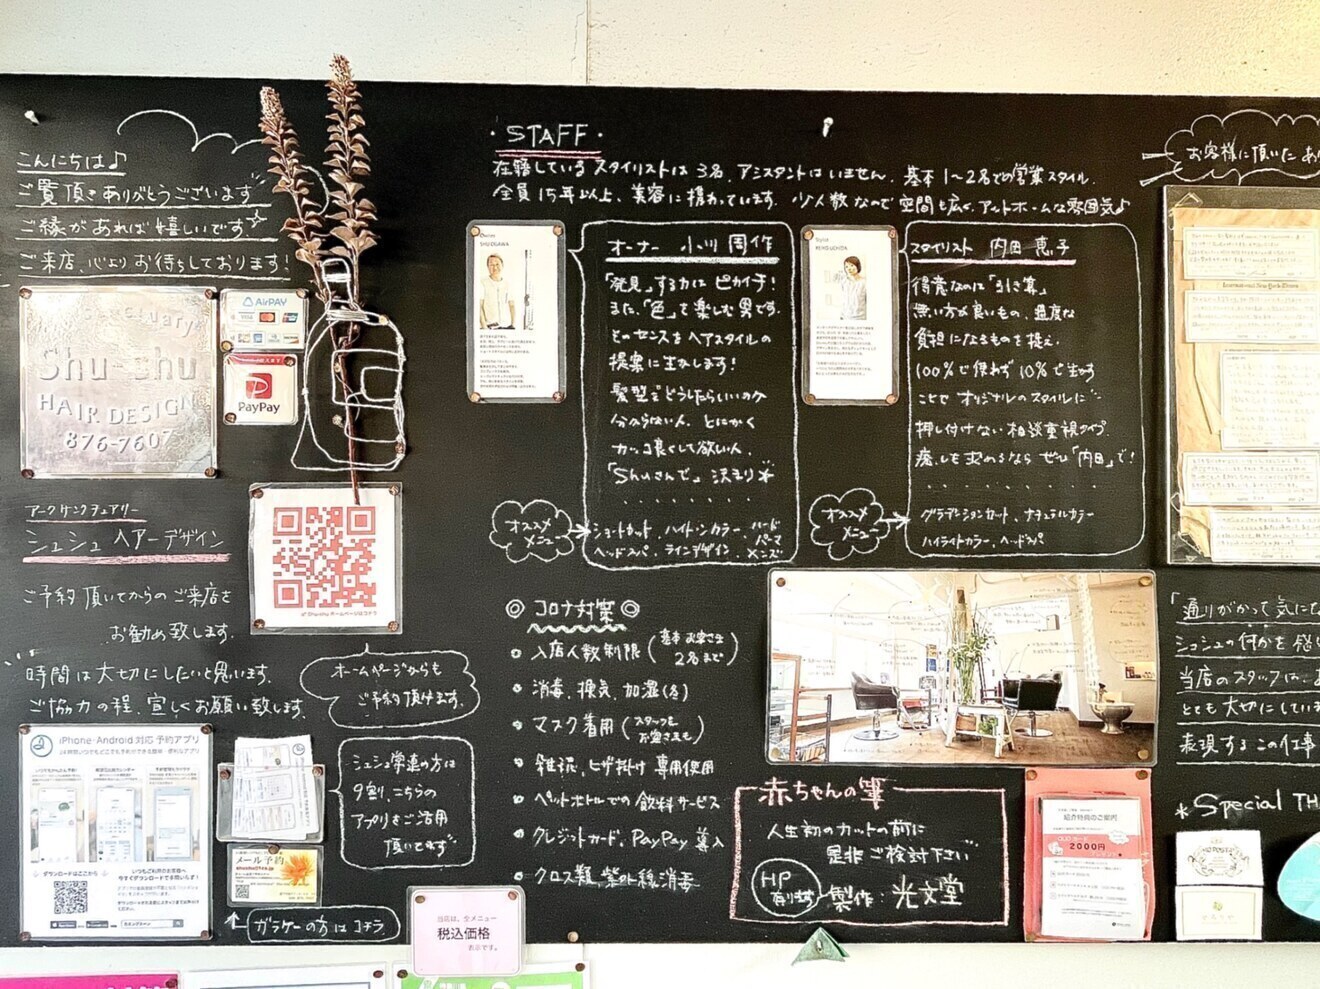 こんにちは♪
ご覧頂きありがとうございます
ご縁があれば嬉しいです。
ご来店、心よりお待ちしております!
Sanctuary
Shu-shu
HAIR DESIGN
876-7607
AirPAY
PayPay
アークサンクチュアリー
シュシュ ヘアーデザイン
ご予約頂いてからのご来店を
お勧め致します。
時間は大切にしたいと思います。
ご協力の程、宜しくお願い致します。
ホームページからも
ご予約頂けます。
iPhone・Android 対応 予約アプリ
24時間いつでもどこでも予約ができる簡単・便利なアプリ
ダウンロードはここから
いつもご利用のお客様へ
シュシュ常連の方は
9割、こちらの
アプリをご活用
頂いてます
メール予約
ガラケーの方はコチラ
当店は、全メニュー
税込価格
表示です。
・STAFF・
在籍しているスタイリストは3名、アシスタントはいません。基本1〜2名での営業スタイル。
全員15年以上、美容に携わっています。少人数なので空間も広く、アットホームな雰囲気♪
Owner
SHU OGAWA
オーナー 小川 周作
「発見」する力はピカイチ!
また、「色」を楽しむ男です。
そのセンスをヘアスタイルの
提案に生かします!
髪型をどうしたらいいのか
分からない人、とにかく
カッコ良くして欲しい人、
「Shuさんで」決まり
オススメ
メニュー
ショートカット、ハイトーンカラー、ハード
パーマ
ヘッドスパ、ラインデザイン、メンズ
スタイリスト 内田 恵子
得意なのは「引き算」
無い方が良いもの、過度な
負担になるものを捉え、
100%で使わず10%で生かす
ことで オリジナルのスタイルに
押し付けない相談重視タイプ。
癒しを求めるなら ぜひ「内田」で!
オススメ
メニュー
グラデーションカット、ナチュラルカラー
ハイライトカラー、ヘッドスパ
◎コロナ対策◎
入店人数制限(基本お客さま
2名まで)
消毒、換気、加湿(冬)
マスク着用(スタッフも
お客さまも)
雑誌、ヒザ掛け 専用使用
ペットボトルでの飲料サービス
クレジットカード、PayPay 導入
クロス類 紫外線消毒
赤ちゃんの筆
人生初のカットの前に
是非ご検討下さい
HP
有ります
製作:光文堂
紹介特典のご案内
2000円
お客様に頂いた
「通りがかって気にな
シュシュの何かを感
当店のスタッフは、
とても大切にしてい
表現するこの仕事
*Special TH